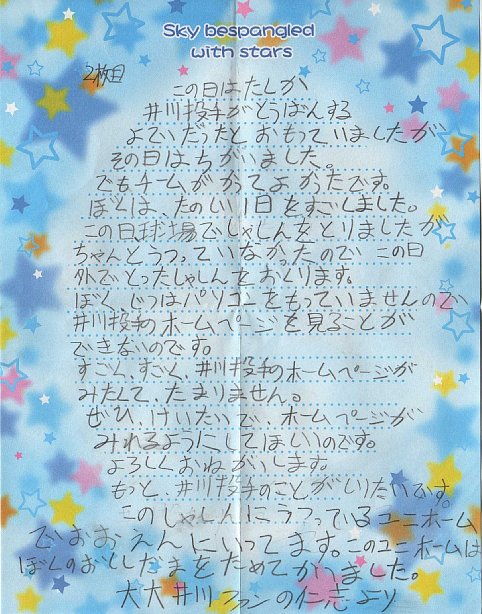 Sky bespangled
with stars
2枚目
この日はたしか
井川投手がとうばんする
よていだったとおもっていましたが
その日はちがいました。
でもチームがかってよかったです。
ぼくは、たのしい1日をすごしました。
この日、球場でしゃしんをとりましたが
ちゃんとうつっていなかったので この日
外でとったしゃしんをおくります。
ぼく、じつはパソコンをもっていませんので
井川投手のホームページを見ることが
できないのです。
すごく、すごく、井川投手のホームページが
みたくて、たまりません。
ぜひ、けいたいで、ホームページが
みれるようにしてほしいのです。
よろしくおねがいします。
もっと、井川投手のことがしりたいです。
このしゃしんにうつっているユニホーム
でおおえんにいってます。このユニホームは
ぼくのおとしだまをためてかいました。
大大井川ファンの仁志より